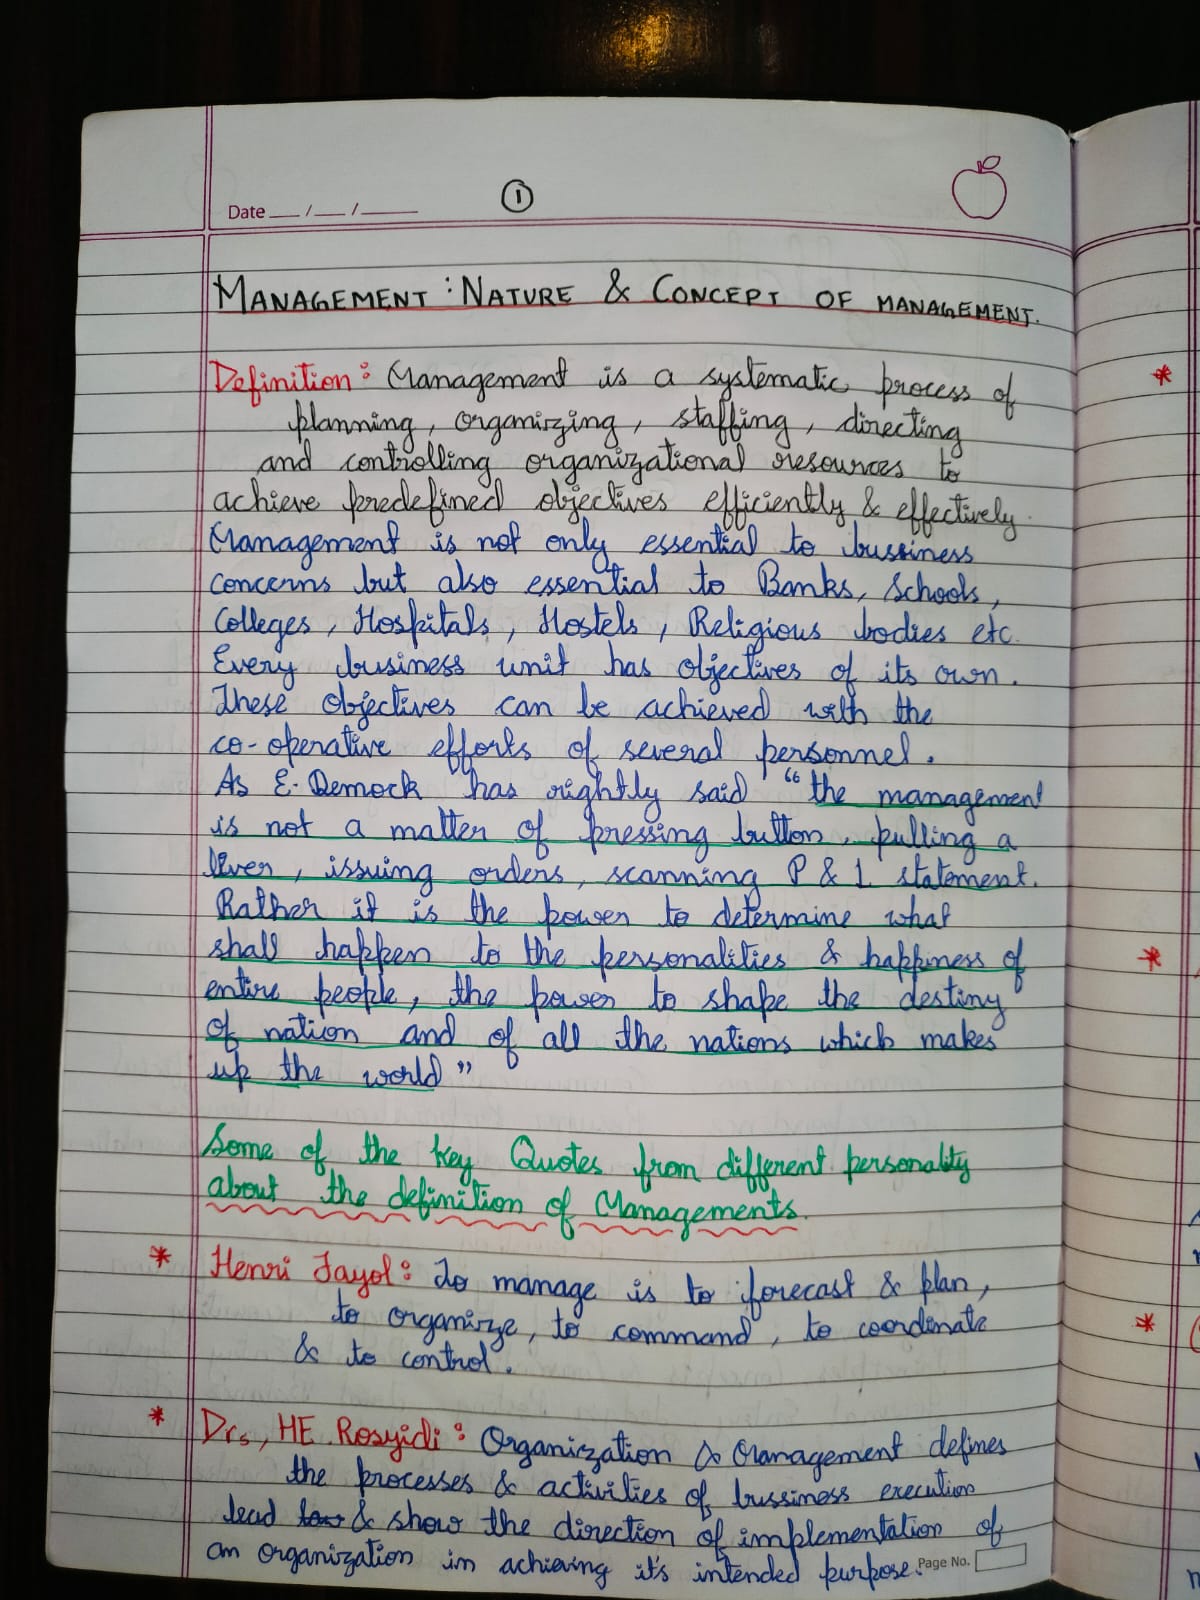 Date __/__/____
1
MANAGEMENT : NATURE & CONCEPT OF MANAGEMENT.
Definition : Management is a systematic process of
planning, organizing, staffing, directing
and controlling organizational resources to
achieve predefined objectives efficiently & effectively.
Management is not only essential to bussiness
concerns but also essential to Banks, Schools,
Colleges, Hospitals, Hostels, Religious bodies etc.
Every business unit has objectives of its own.
These objectives can be achieved with the
co-operative efforts of several personnel.
As E. Demock has rightly said "the management
is not a matter of pressing button, pulling a
liver, issuing orders, scanning P & L statement.
Rather it is the power to determine what
shall happen to the personalities & happiness of
entire people, the power to shape the destiny
of nation and of all the nations which makes
up the world"
Some of the key Quotes from different personality
about the definition of Managements.
* Henri Fayol : To manage is to forecast & plan,
to organize, to command, to coordinate
& to control.
* Drs, HE. Rosyidi : Organization & Management defines
the processes & activities of bussiness execution
lead & show the direction of implementation of
an organization in achieving it's intended purpose.
Page No.